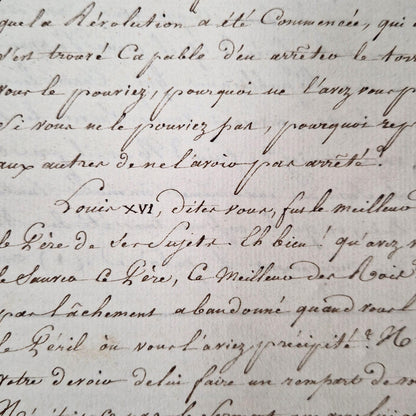 que la Révolution a été Commencée, qui a
s'en trouvé Capable d'en arrêter le torr
vous le pouviez, pourquoi ne l'avez vous p
Si vous ne le pouviez pas, pourquoi rep
aux autres de ne l'avoir pas arrêté?
Louis XVI, dites vous, fut le meilleur
le Père de Ses Sujets. Eh bien! qu'avez
le Sauver Ce Père, Ce Meilleur des Rois?
pas lâchement abandonné quand vous l
le Péril où vous l'aviez précipité? N
votre devoir de lui faire un rempart de vo